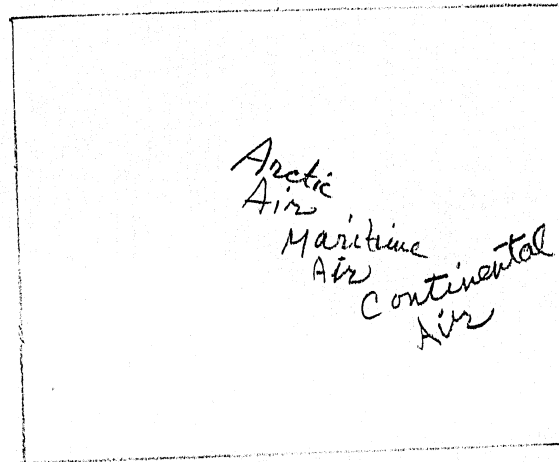 Arctic
Air
Maritime
Air
Continental
Air